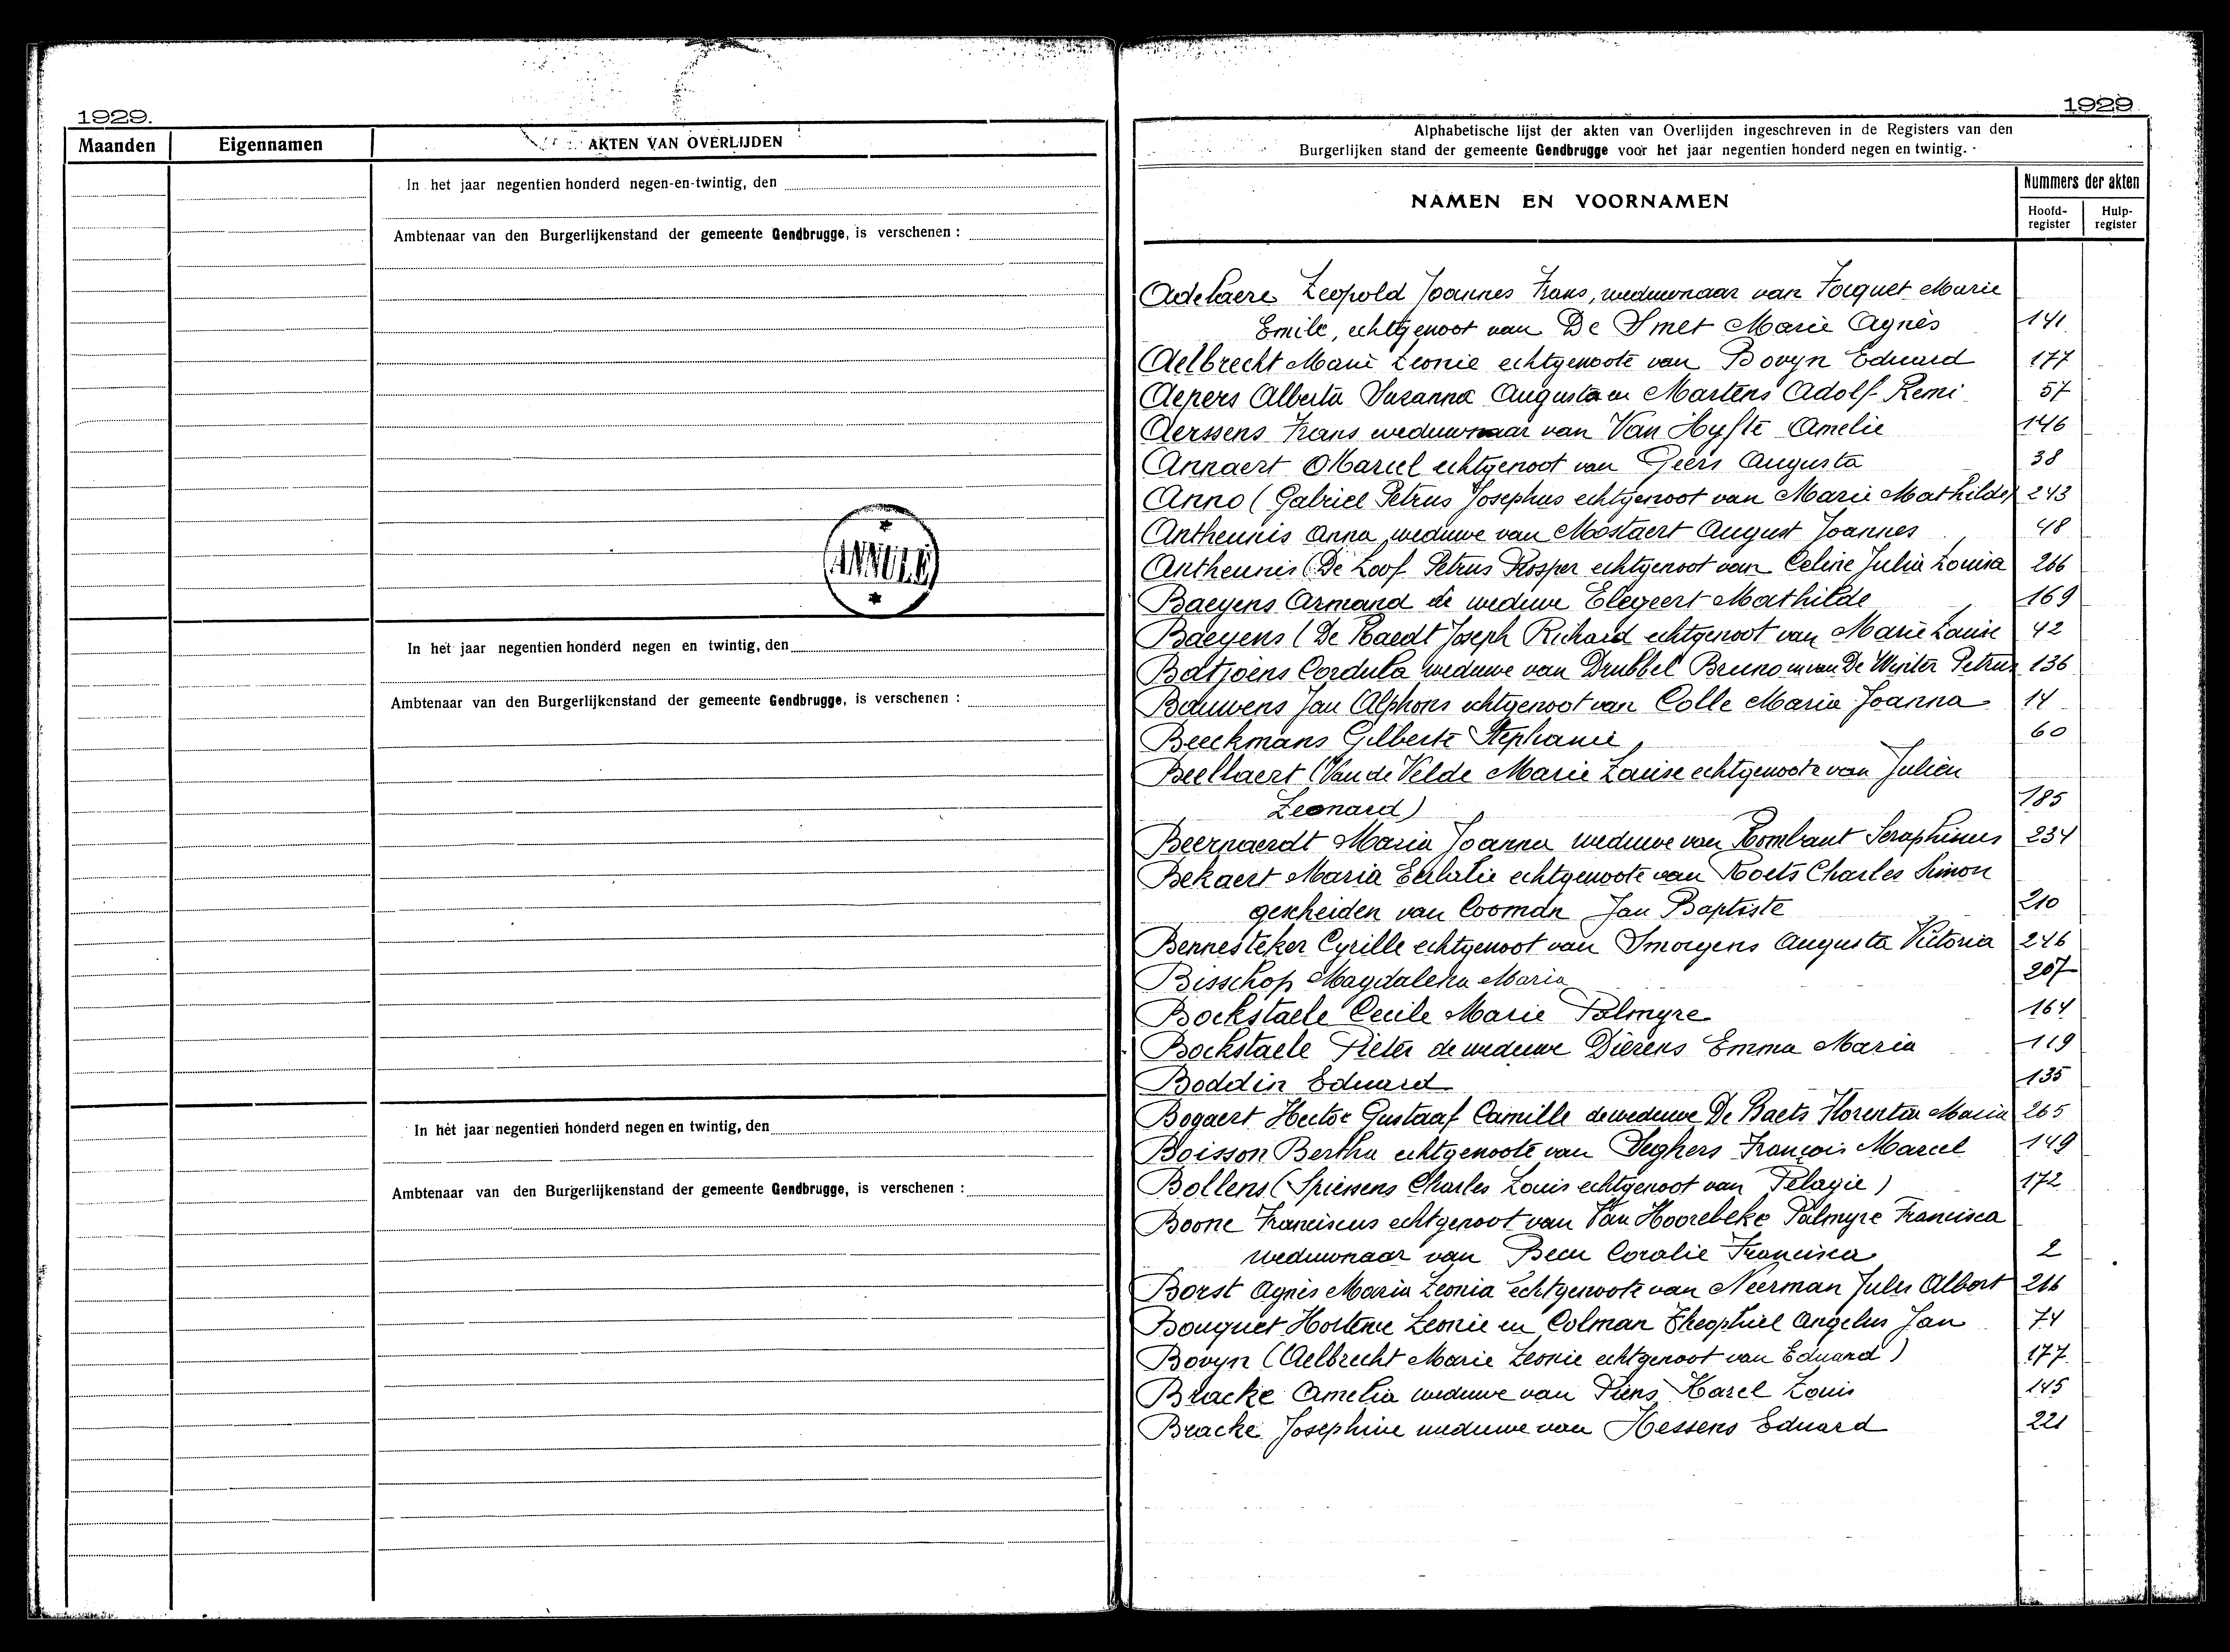 1929.
Maanden Eigennamen AKTEN VAN OVERLIJDEN
In het jaar negentien honderd negen-en-twintig, den
Ambtenaar van den Burgerlijkenstand der gemeente Gendbrugge, is verschenen :
ANNULÉ
In het jaar negentien honderd negen en twintig, den
Ambtenaar van den Burgerlijkenstand der gemeente Gendbrugge, is verschenen :
In het jaar negentien honderd negen en twintig, den
Ambtenaar van den Burgerlijkenstand der gemeente Gendbrugge, is verschenen :
1929
Alphabetische lijst der akten van Overlijden ingeschreven in de Registers van den
Burgerlijken stand der gemeente Gendbrugge voor het jaar negentien honderd negen en twintig.
NAMEN EN VOORNAMEN
Nummers der akten
Hoofd-register
Hulp-register
Adelaere Leopold Joannes Frans, weduwnaar van Focquet Marie
Emile, echtgenoot van De Smet Marie Agnès 141
Aelbrecht Marie Leonie echtgenoote van Bovyn Eduard 177
Aepers Alberta Suzanna Augusta en Martens Adolf Remi 57
Aerssens Frans weduwnaar van Van Hyfte Amelie 146
Annaert Marcel echtgenoot van Geers Augusta 38
Anno (Gabriel Petrus Josephus echtgenoot van Marie Mathilde) 243
Antheunis Anna weduwe van Mostaert August Joannes 48
Antheunis (De Loof Petrus Prosper echtgenoot van Celine Julia Louisa 266
Baeyens Armand de weduwe Elegeert Mathilde 169
Baeyens (De Raedt Joseph Richard echtgenoot van Marie Louise 42
Batjoens Cordula weduwe van Drubbel Bruno en van De Winter Petrus 136
Bauwens Jan Alphons echtgenoot van Colle Maria Joanna 14
Beeckmans Gilberte Stephanie 60
Beellaert (Van de Velde Marie Louise echtgenoote van Julien
Leonard) 185
Beernaerdt Maria Joanna weduwe van Rombaut Seraphinus 234
Bekaert Maria Eulalie echtgenoote van Roets Charles Simon
gescheiden van Cooman Jan Baptiste 210
Bennesteker Cyrille echtgenoot van Smoryens Augusta Victoria 246
Bisschop Magdalena Maria 207
Bockstaele Cecile Marie Palmyre 164
Bockstaele Pieter de weduwe Dierens Emma Maria 119
Boddin Eduard 135
Bogaert Hector Gustaaf Camille de weduwe De Baets Florentia Maria 265
Boisson Bertha echtgenoote van Seghers François Marcel 149
Bollens (Spiessens Charles Louis echtgenoot van Pelagie) 172
Boone Franciscus echtgenoot van Van Hoorebeke Palmyre Francisca
weduwnaar van Becu Coralie Francisca 2
Borst Agnes Maria Leonia echtgenoote van Neerman Jules Albert 216
Bouquet Hortense Leonie en Colman Theophiel Angelus Jan 74
Bovyn (Aelbrecht Marie Leonie echtgenoot van Eduard) 177
Bracke Amelia weduwe van Piens Karel Louis 145
Bracke Josephine weduwe van Hessens Eduard 221